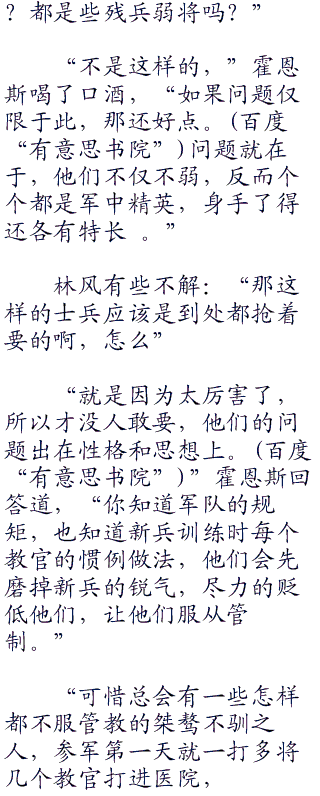 ？都是些残兵弱将吗？”
“不是这样的，”霍恩
斯喝了口酒，“如果问题仅
限于此，那还好点。(百度
“有意思书院”)问题就在
于，他们不仅不弱，反而个
个都是军中精英，身手了得
还各有特长 。”
林风有些不解：“那这
样的士兵应该是到处都抢着
要的啊，怎么”
“就是因为太厉害了，
所以才没人敢要，他们的问
题出在性格和思想上。(百度
“有意思书院”)”霍恩斯回
答道，“你知道军队的规
矩，也知道新兵训练时每个
教官的惯例做法，他们会先
磨掉新兵的锐气，尽力的贬
低他们，让他们服从管
制。”
“可惜总会有一些怎样
都不服管教的桀骜不驯之
人，参军第一天就一打多将
几个教官打进医院，